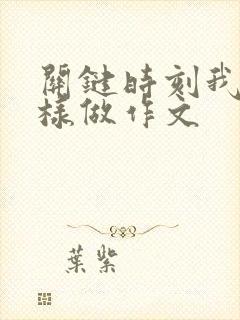 關鍵時刻我
樣做作文
葉紫